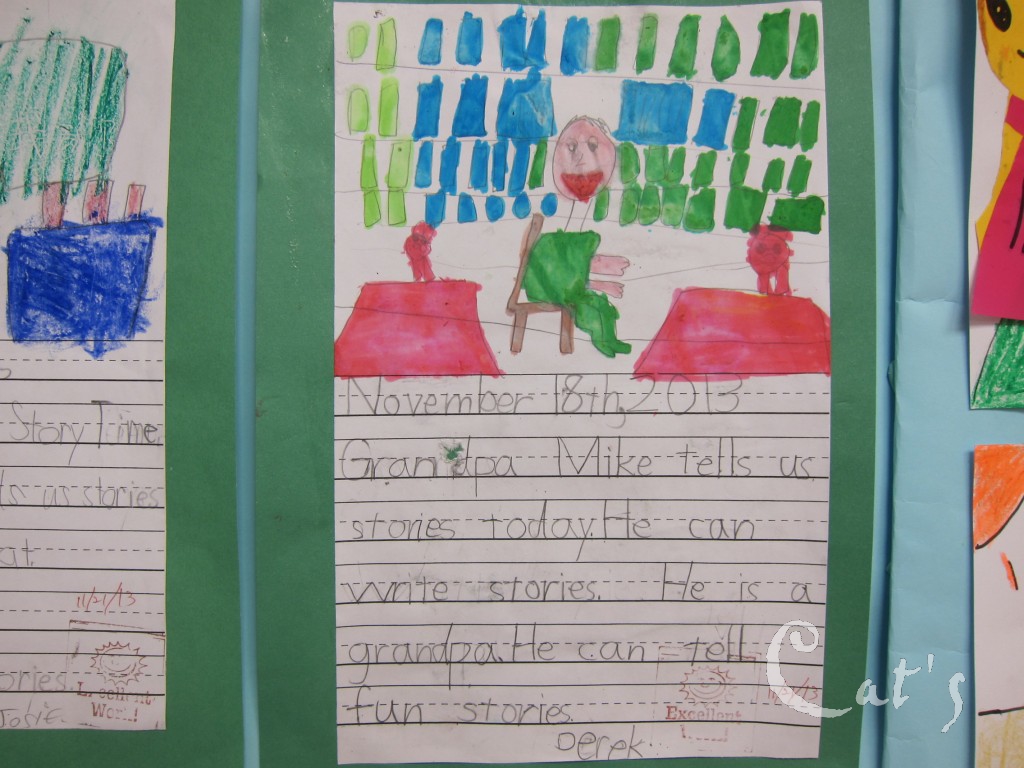 Story Time.
us stories
at.
11/21/13
Work!
November 18th, 2013
Grandpa Mike tells us
stories today. He can
write stories. He is a
grandpa. He can tell
fun stories.
Excellent
Derek
Cat's